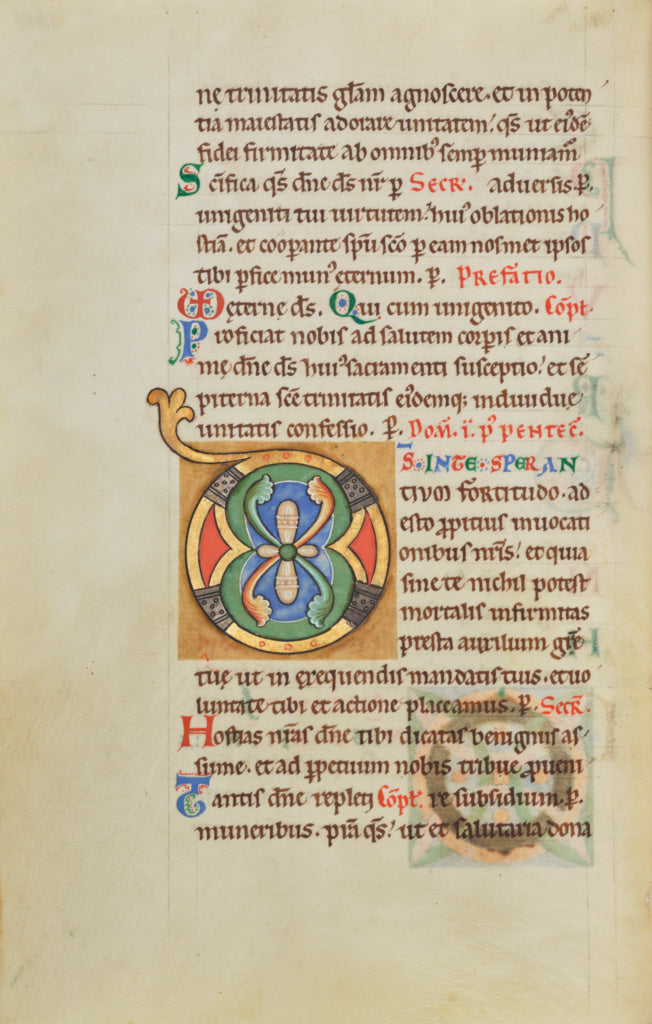 nę trinitatis gl̄am agnoscere. et in poten
tia maiestatis adorare unitatem. qs̄ ut eiꝰdē
fidei firmitate ab omnibꝰ semp muniam̄
Sc̄ifica qs̄ dn̄e ds̄ nr̄ p Secr̄. aduersis. P.
unigeniti tui uirtutem. huiꝰ oblationis ho
stiā. et coopante sp̄u sc̄o p eam nosmet ipsos
tibi pfice munꝰ eternum. P. Prefatio.
VD eterne ds̄. Qui cum unigenito. Cōpl.
Proficiat nobis ad salutem corpis et ani
mę dn̄e ds̄ huiꝰ sacramenti susceptio. et sē
piterna sc̄e trinitatis eiꝰdemq; indiuiduę
unitatis confessio. P. Dom̄. i. p̄ pentec̄.
D̄S. INTE. SPERAN
TIUM fortitudo. ad
esto ꝓpitius inuocati
onibus nr̄is. et quia
sine te nichil potest
mortalis infirmitas
presta auxilium gr̄e
tuę ut in exequendis mandatis tuis. et uo
luntate tibi et actione placeamus. P. Secr̄.
Hostias nr̄as dn̄e tibi dicatas benignus as-
sume. et ad ppetuum nobis tribue ꝓueni
Tantis dn̄e repleti Cōpl. re subsidium. P.
muneribus. p̄ra qs̄. ut et salutaria dona